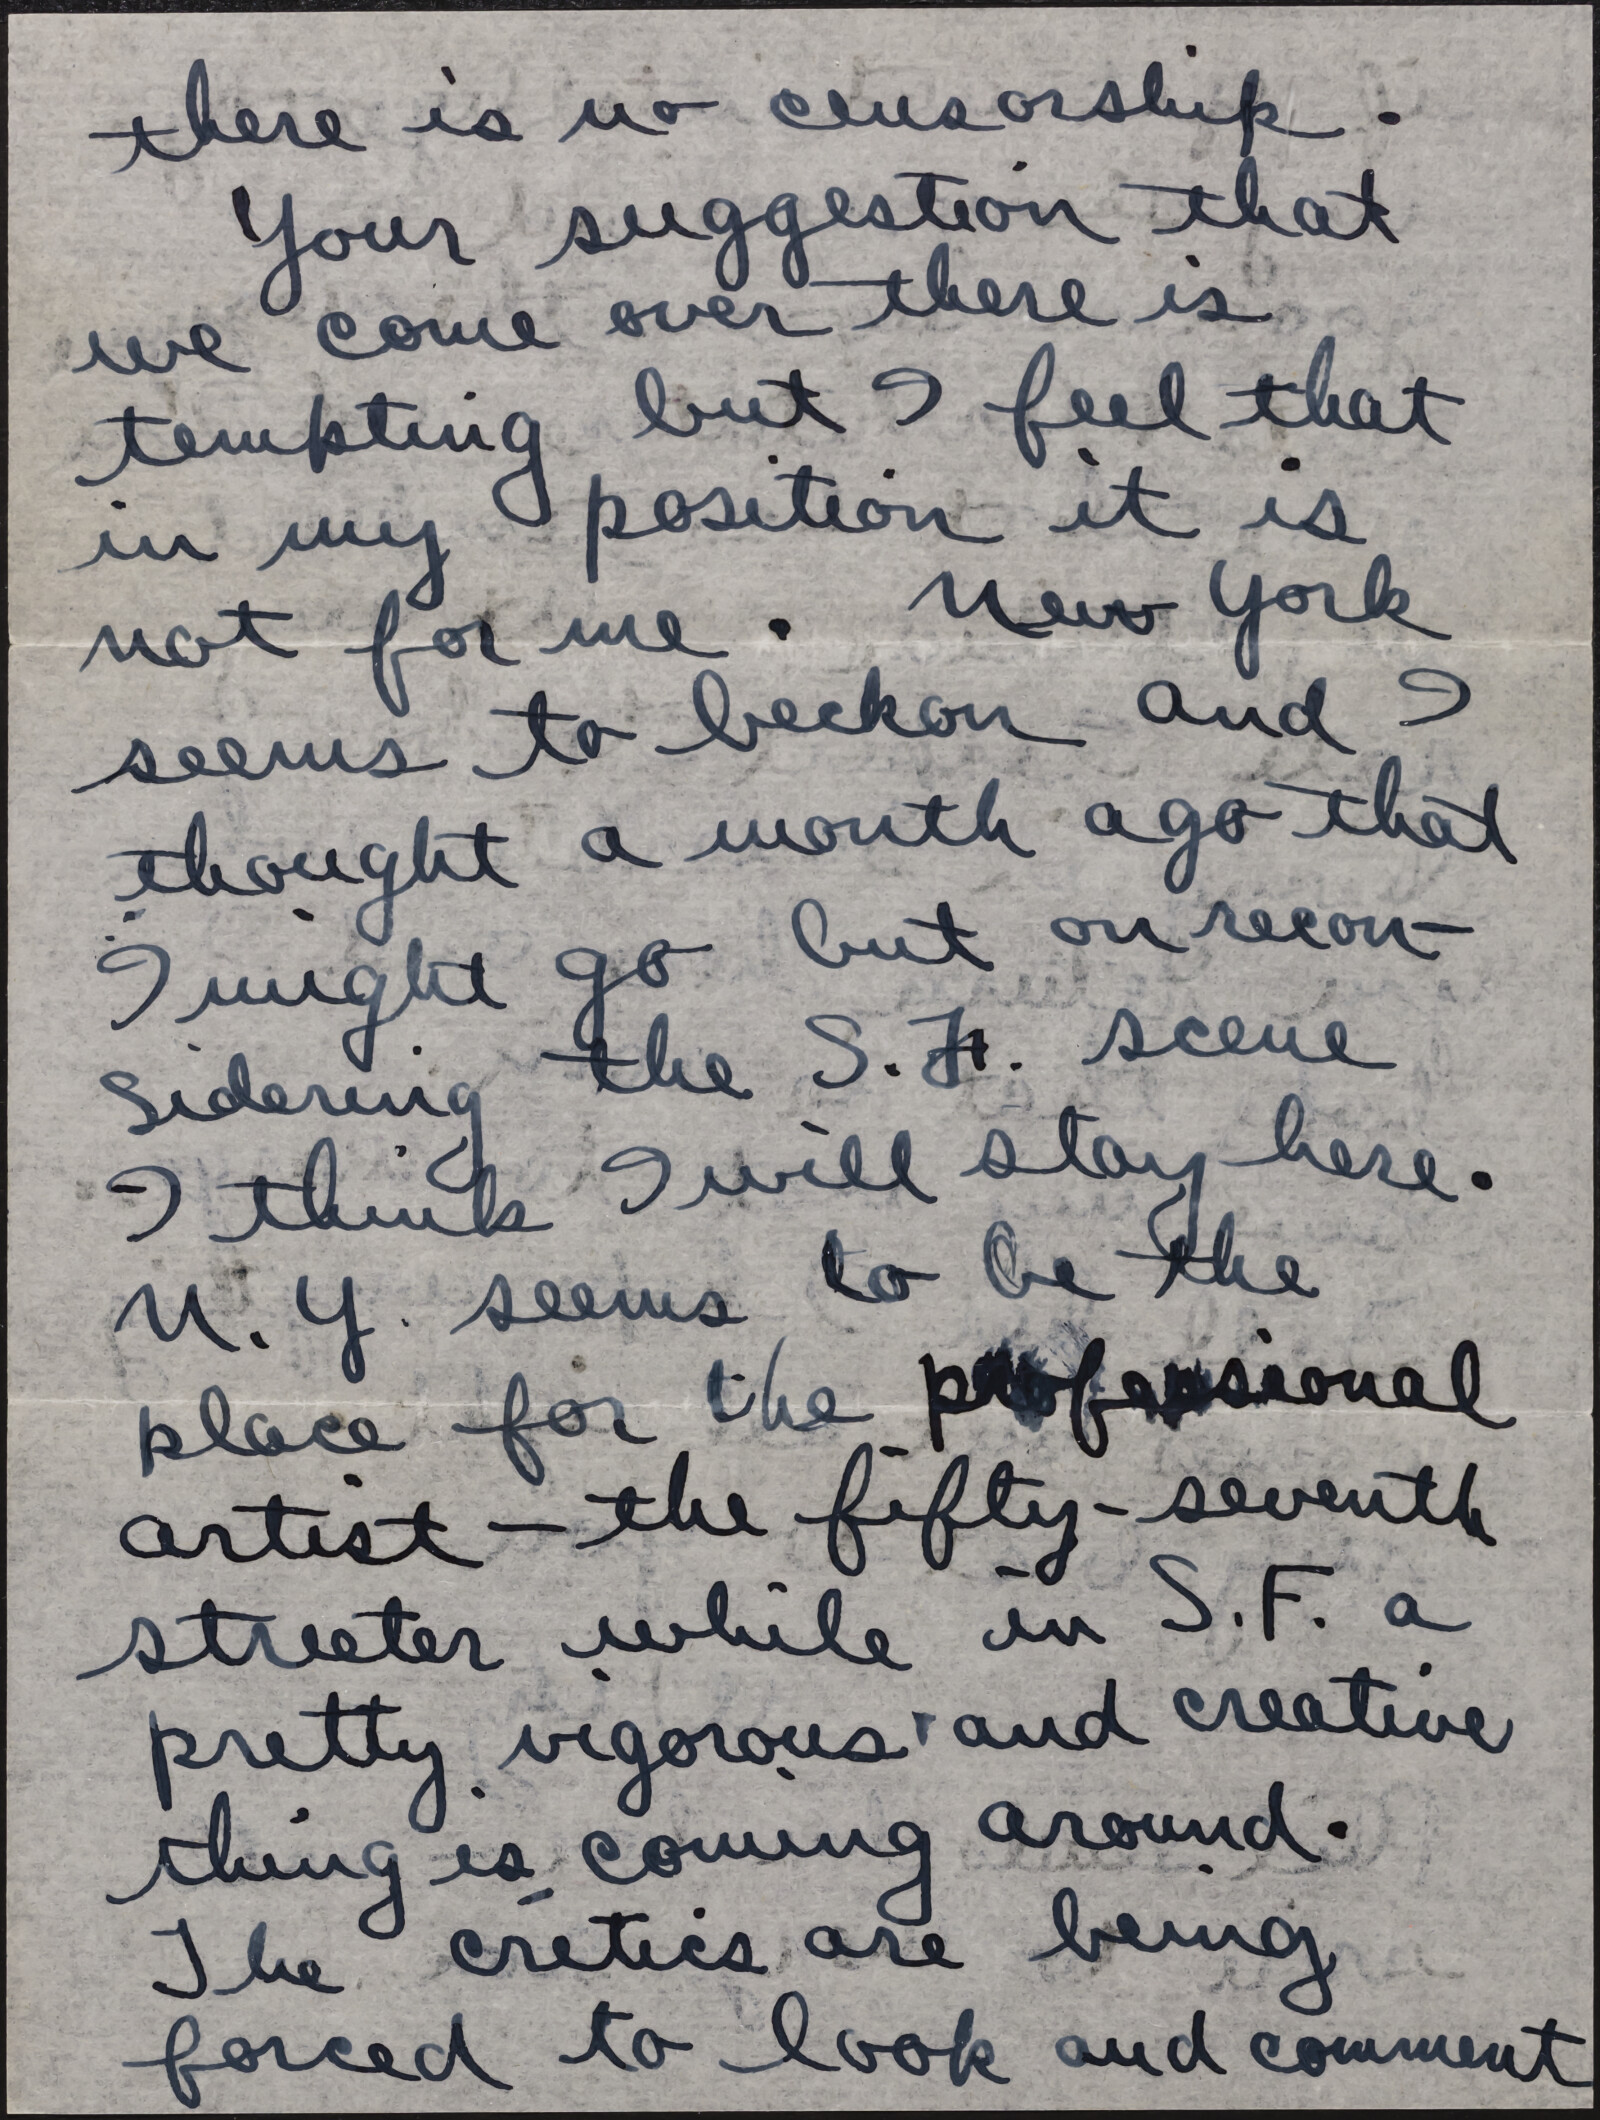 there is no censorship.
Your suggestion that
we come over there is
tempting but I feel that
in my position it is
not for me. New York
seems to beckon and I
thought a month ago that
I might go but on recon-
sidering the S.F. scene
I think I will stay here.
N.Y. seems to be the
place for the professional
artist – the fifty-seventh
streeter while in S.F. a
pretty vigorous and creative
thing is coming around.
The critics are being
forced to look and comment